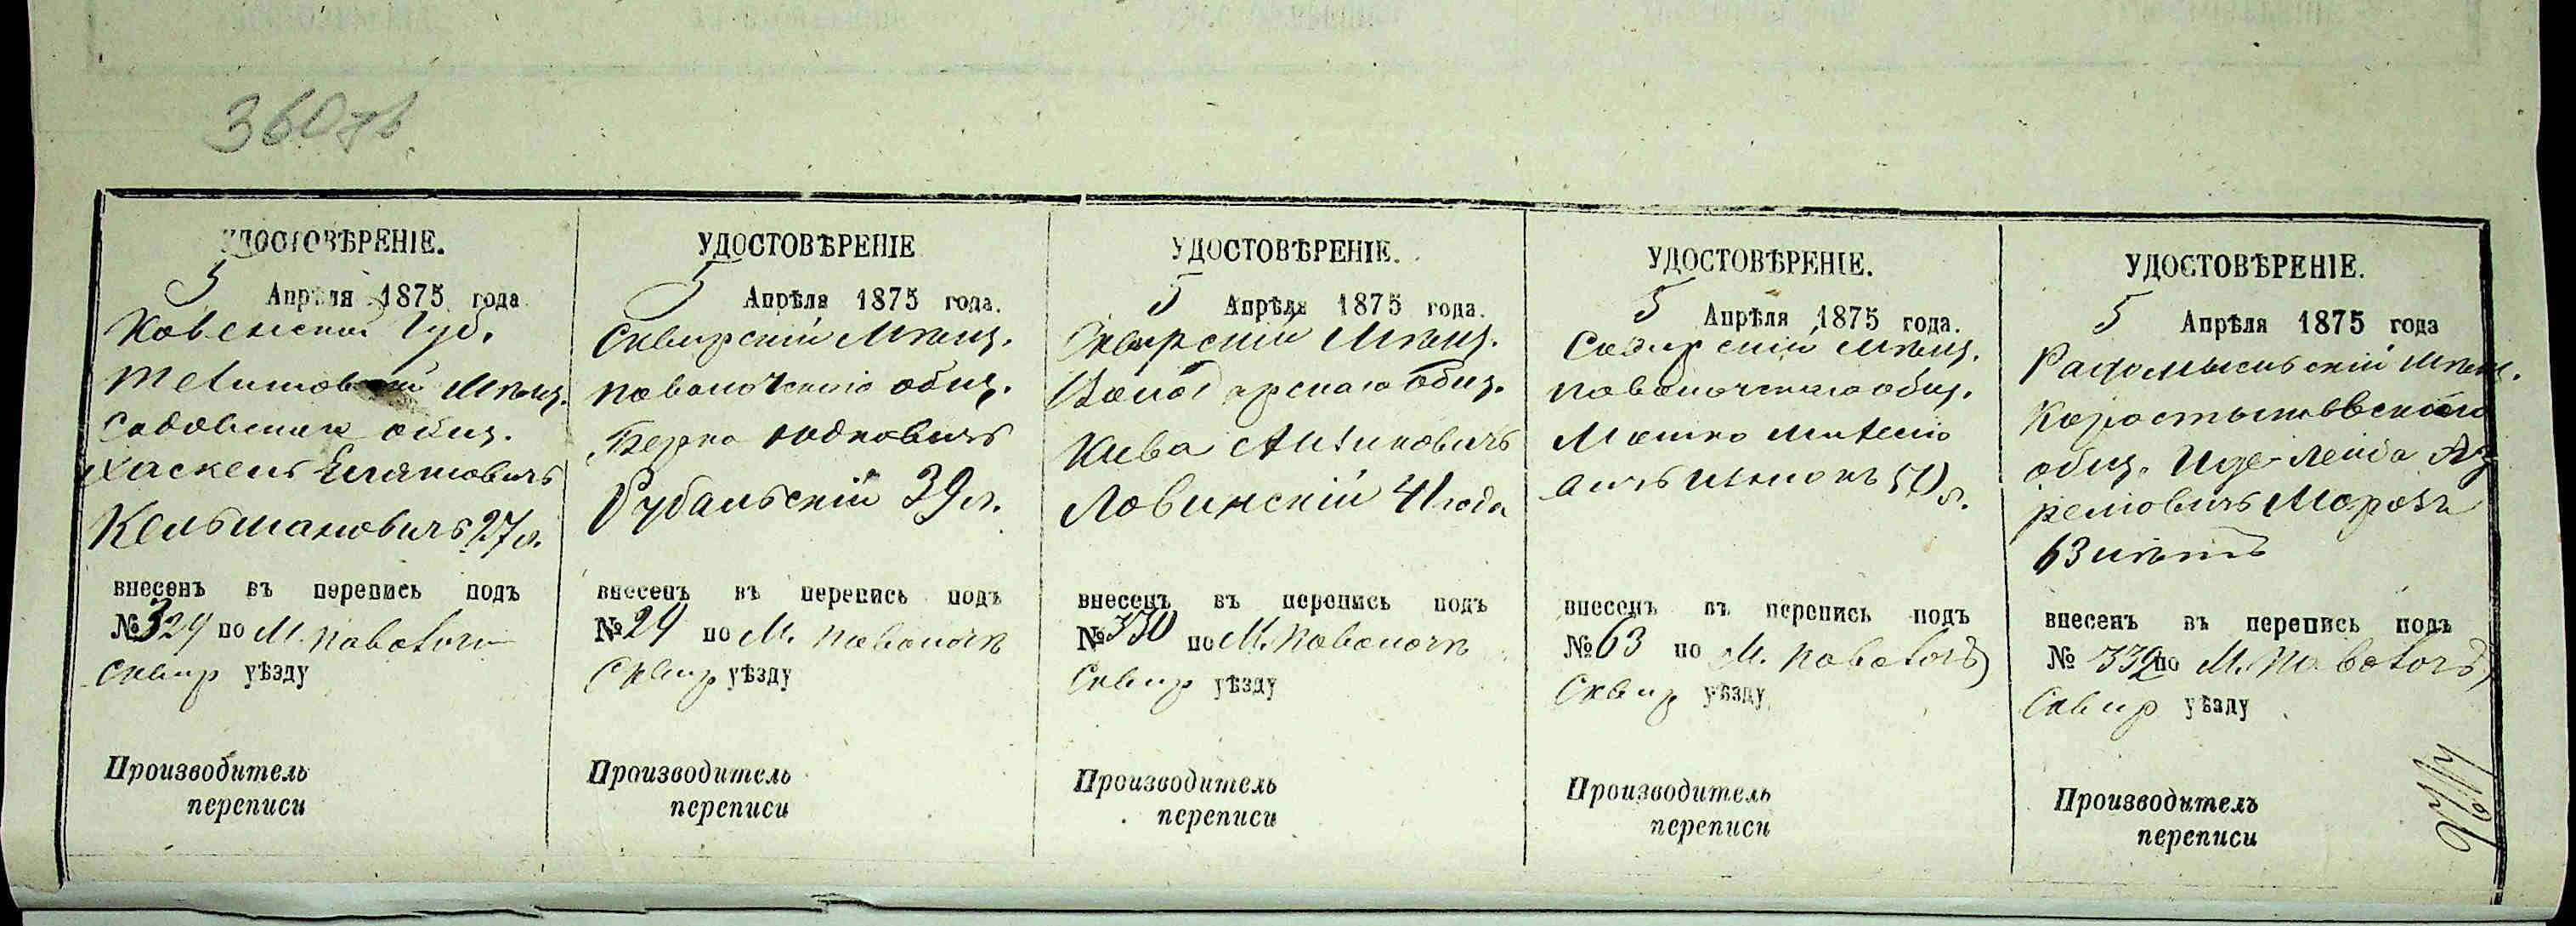 360
УДОСТОВѢРЕНІЕ.
5 Апрѣля 1875 года
Ковенской Губ.
Мѣщ.
общ.
Хаскель
Кельмановичъ 27 л.
внесенъ въ перепись подъ
№ 329 по М. Паволочи
Сквир уѣзду
Производитель
переписи
УДОСТОВѢРЕНІЕ
5 Апрѣля 1875 года.
Сквирскій Мѣщ.
Паволочскаго общ.
Берко Юдковичъ
Рубальскій 39 л.
внесенъ въ перепись подъ
№ 29 по М. Паволочѣ
Сквир уѣзду
Производитель
переписи
УДОСТОВѢРЕНІЕ.
5 Апрѣля 1875 года.
Сквирскій Мѣщ.
Володарскаго Общ.
Кива
Ловинскій 41 года
внесенъ въ перепись подъ
№ 330 по М. Паволочѣ
Сквир уѣзду
Производитель
переписи
УДОСТОВѢРЕНІЕ.
5 Апрѣля 1875 года.
Сквирскій мѣщ.
Паволочскаго общ.
Мошко
50 л.
внесенъ въ перепись подъ
№ 63 по М. Паволочѣ
Сквир уѣзду
Производитель
переписи
УДОСТОВѢРЕНІЕ.
5 Апрѣля 1875 года
Радомысльскій Мѣщ.
Коростышевскаго
общ.
ремовичъ Морозъ
63 лѣтъ
внесенъ въ перепись подъ
№ 332 по М. Паволочѣ
Сквир уѣзду
Производитель
переписи